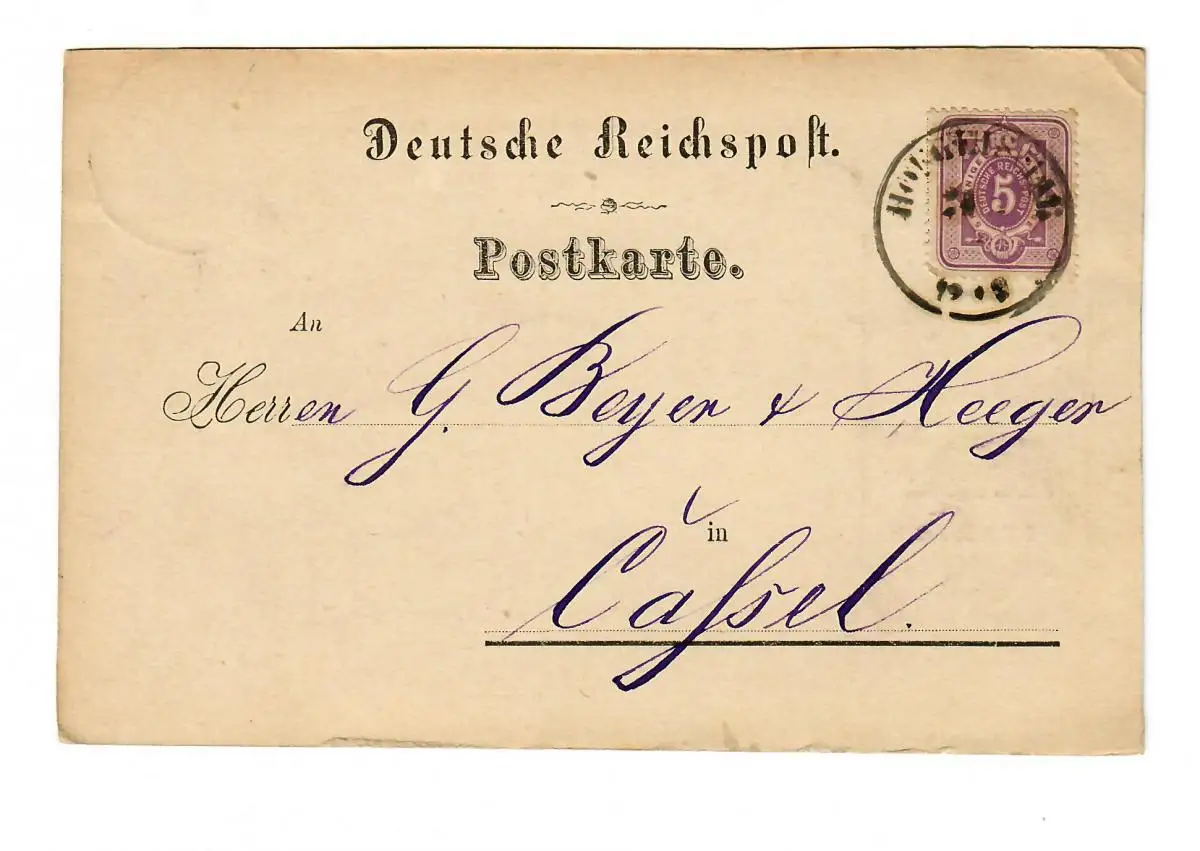 Deutsche Reichspost.
Postkarte.
An
Herren G. Beyer & Heeger
in
Cassel.
5
DEUTSCHE REICHS-POST